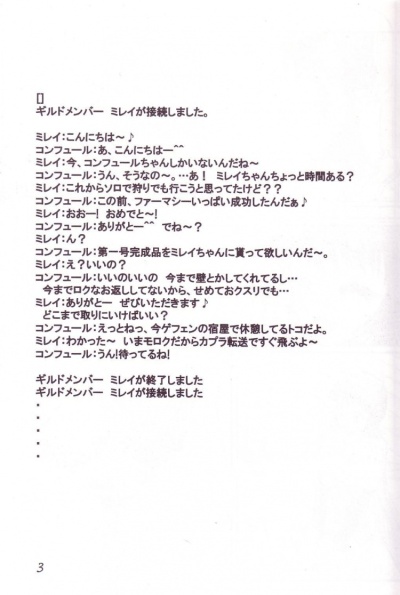 []
ギルドメンバー ミレイが接続しました。
ミレイ：こんにちは～♪
コンフュール：あ、こんにちはー^^
ミレイ：今、コンフュールちゃんしかいないんだね～
コンフュール：うん、そうなの～。…あ！ ミレイちゃんちょっと時間ある？
ミレイ：これからソロで狩りでも行こうと思ってたけど？？
コンフュール：この前、ファーマシーいっぱい成功したんだぁ♪
ミレイ：おおー！おめでと～！
コンフュール：ありがとー^^ でね～？
ミレイ：ん？
コンフュール：第一号完成品をミレイちゃんに貰って欲しいんだ～。
ミレイ：え？いいの？
コンフュール：いいのいいの 今まで壁とかしてくれてるし…
今までロクなお返ししてないから、せめておクスリでも…
ミレイ：ありがとー ぜひいただきます♪
どこまで取りにいけばいい？
コンフュール：えっとねっ、今ゲフェンの宿屋で休憩してるトコだよ。
ミレイ：わかった～ いまモロクだからカプラ転送ですぐ飛ぶよ～
コンフュール：うん！待ってるね！
ギルドメンバー ミレイが終了しました
ギルドメンバー ミレイが接続しました
・
・
・
・
・
3